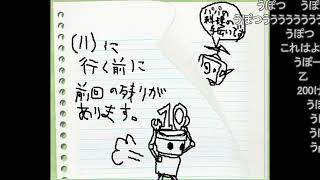 (11)に
行く前に
前回の残りが
あります。
パパの
料理の
手伝いで
10
うぽつ うぽつ
うぽつうううううううう
うぽつ
これはよ
うぽー
乙
200げ
うぽ
うぽ
うぽ